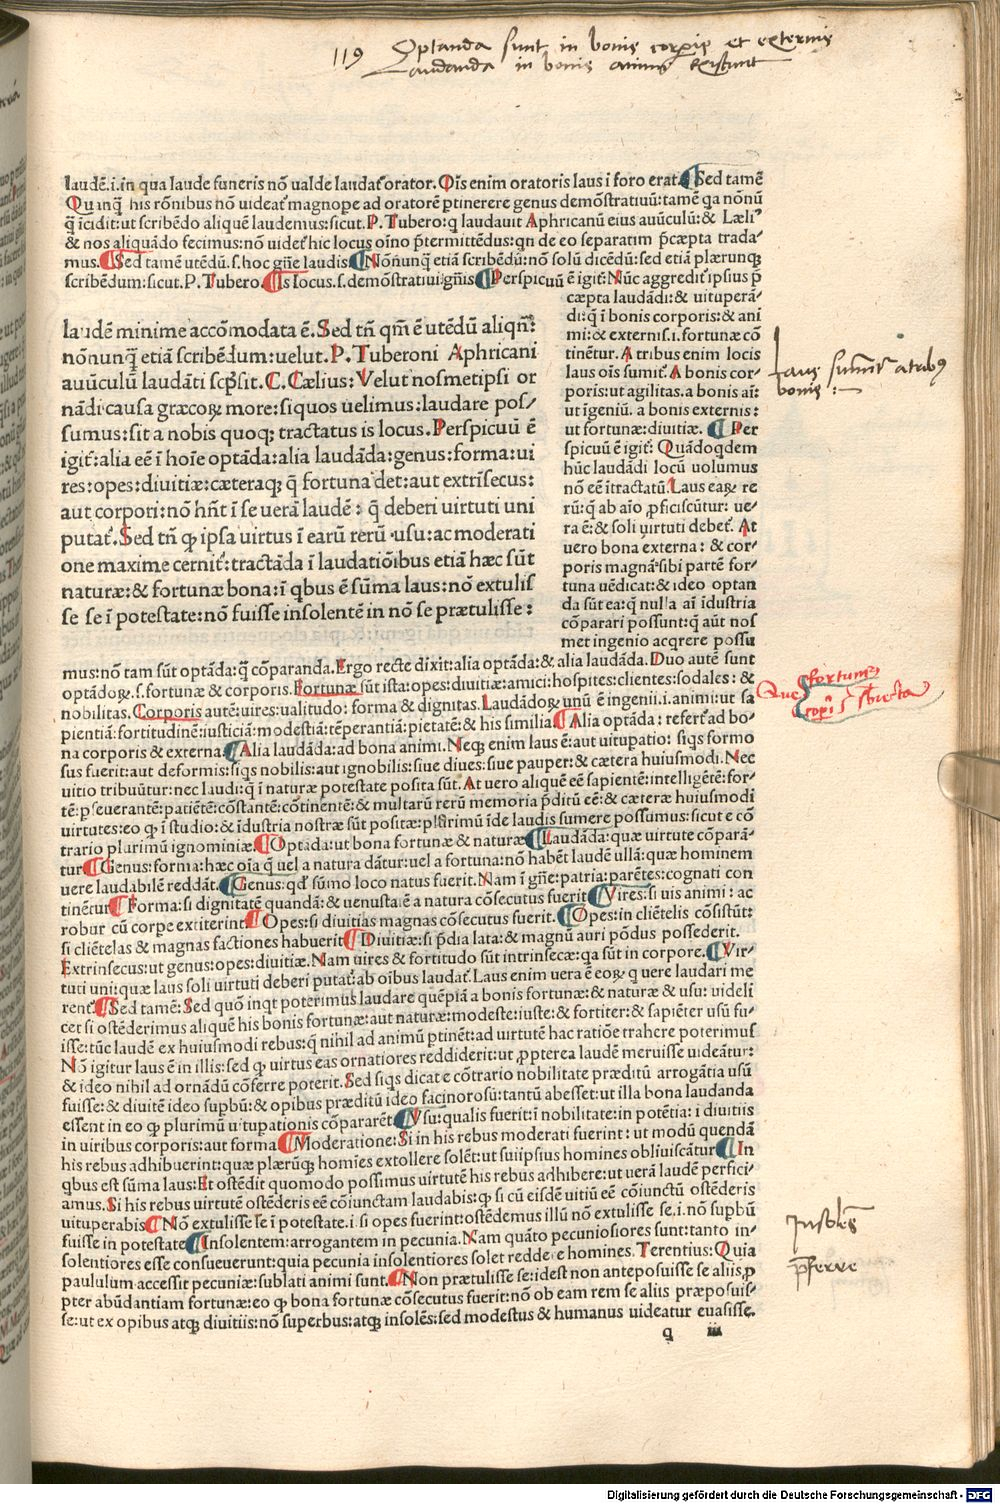 119 Optanda sunt in bonis corporis et externis
Laudanda in bonis animi existunt
laudē.i.in qua laude funeris nō ualde laudat᷑ orator. Oīs enim oratoris laus ī foro erat. ¶ Sed tamē
Quanq̄ his rōnibus nō uideat᷑ magnope ad oratorē ptinerere genus demōstratiuū: tamē qa nōnū
q̄ īcidit:ut scribēdo aliquē laudemus:sicut.P.Tubero:q laudauit Aphricanū eius auūculū:& Læli⁹
& nos aliquādo fecimus:nō uidet᷑ hic locus oīno p̄termittēdus:qn de eo separatim p̄cæpta trada-
mus. ¶ Sed tamē utēdū.s.hoc gn̄e laudis ¶ Nōnunq̄ etiā scribēdū:nō solū dicēdū:sed etiā plærunqꝫ
scribēdum:sicut.P.Tubero. ¶ Is locus.s.demōstratiui gn̄is ¶ Perspicuū ē igit᷑:Nūc aggredit᷑ ipsius p̄
laudē minime accōmodata ē.Sed tn̄ qm̄ ē utēdū aliqn̄:
nōnunq̄ etiā scribēdum:uelut.P.Tuberoni Aphricani
auūculū laudāti scp̄sit.C.Cælius:Velut nosmetipsi or
nādi causa græcoꝝ more:si quos uelimus:laudare pos-
sumus:sit a nobis quoqꝫ tractatus is locus.Perspicuū ē
igit᷑:alia eē ī hoīe optāda:alia laudāda:genus:forma:ui
res:opes:diuitiæ:cæteraqꝫ q̄ fortuna det:aut extrīsecus:
aut corpori:nō hn̄t ī se uerā laudē: q̄ deberi uirtuti uni
putat᷑.Sed tn̄ ꝙ ipsa uirtus ī earū rerū usu:ac moderati
one maxime cernit᷑:tractāda ī laudatiōibus etiā hæc sūt
naturæ:& fortunæ bona:ī qbus ē sūma laus:nō extulis
se se ī potestate:nō fuisse insolentē in nō se prætulisse:
cæpta laudādi:& uituperā-
di:q̄ ī bonis corporis:& ani
mi:& externis.i.fortunæ cō
tinētur.A tribus enim locis
laus oīs sumit᷑.A bonis cor-
poris:ut agilitas.a bonis aī:
ut īgeniū.a bonis externis:
ut fortunæ:diuitiæ. ¶ Per
spicuū ē igit᷑: Quādoqdem
hūc laudādi locū uolumus
nō eē ītractatū.Laus eaꝝ re
rū:q̄ ab aīo ꝓficiscūtur: ue-
ra ē:& soli uirtuti debet᷑. At
uero bona externa: & cor-
poris magnā sibi partē for-
tuna uēdicat:& ideo optan
da sūt ea:q̄ nulla aī īdustria
cōparari possunt:q̄ aūt nos
met ingenio acqrere possu
mus:nō tam sūt optāda:q̄ cōparanda.Ergo recte dixit:alia optāda:& alia laudāda.Duo autē sunt
optādoꝝ.s.fortunæ & corporis.Fortunæ sūt ista:opes:diuitiæ:amici:hospites:clientes:sodales: &
nobilitas.Corporis autē:uires:ualitudo: forma & dignitas.Laudādoꝝ unū ē ingenii.i.animi:ut sa
pientiā:fortitudinē:iusticiā:modestiā:tēperantiā:pietatē:& his similia. ¶ Alia optāda: refert᷑ ad bo-
na corporis & externa. ¶ Alia laudāda:ad bona animi.Neqꝫ enim laus ē:aut uitupatio: siqs formo
sus fuerit:aut deformis:siqs nobilis:aut ignobilis:siue diues:siue pauper:& cætera huiusmodi.Nec
uitio tribuūtur:nec laudi:q̄ ī naturæ potestate posita sūt.At uero aliquē eē sapientē:intelligētē:for-
tē:pseuerantē:patiētē:cōstantē:cōtinentē:& multarū rerū memoria p̄ditū eē:& cæteræ huiusmodi
uirtutes:eo ꝙ ī studio:& īdustria nostræ sūt positæ:plurimū īde laudis sumere possumus:sicut e cō
trario plurimū ignominiæ. ¶ Optāda:ut bona fortunæ & naturæ ¶ Laudāda:quæ uirtute cōparā-
tur ¶ Genus:forma:hæc oīa q̄ uel a natura dātur:uel a fortuna:nō habēt laudē ullā:quæ hominem
uere laudabilē reddāt. ¶ Genus:qd' sūmo loco natus fuerit.Nam ī gn̄e:patria:parētes:cognati con
tinētur ¶ Forma:si dignitatē quandā:& uenusta ē a natura cōsecutus fuerit ¶ Vires:si uis animi: ac
robur cū corpe extiterint. ¶ Opes:si diuitias magnas cōsecutus fuerit. ¶ Opes:in cliētelis cōsistūt:
si cliētelas & magnas factiones habuerit ¶ Diuitiæ:si p̄dia lata:& magnū auri pōdus possederit.
Extrinsecus:ut genus:opes:diuitiæ.Nam uires & fortitudo sūt intrinsecæ:qa sūt in corpore. ¶ Vir-
tuti uni:quæ laus soli uirtuti deberi putat᷑:ab oībus laudat᷑.Laus enim uera ē eoꝝ q uere laudari me
rent᷑. ¶ Sed tamē: Sed quō inqt poterimus laudare quēpiā a bonis fortunæ:& naturæ & usu: uideli
cet si ostēderimus aliquē his bonis fortunæ:aut naturæ:modeste:iuste:& fortiter:& sapiēter usū fu-
isse:tūc laudē ex huiusmodi rebus:q̄ nihil ad animū ptinēt:ad uirtutē hac ratiōe trahere poterimus
Nō igitur laus ē in illis:sed ꝙ uirtus eas ornatiores reddiderit:ut ꝓpterea laudē meruisse uideātur:
& ideo nihil ad ornādū cōferre poterit.Sed siqs dicat e cōtrario nobilitate præditū arrogātia usū
fuisse:& diuitē ideo supbū:& opibus præditū ideo facinorosū:tantū abesset:ut illa bona laudanda
essent in eo ꝙ plurimū uitupationis cōpararēt ¶ Vsu:qualis fuerit:ī nobilitate:in potētia: ī diuitiis
in uiribus corporis:aut forma ¶ Moderatione:Si in his rebus moderati fuerint: ut modū quendā
his rebus adhibuerint:quæ plærūqꝫ homīes extollere solēt:ut sui ipsius homines obliuiscātur ¶ In
qbus est sūma laus:Et ostēdit quomodo possimus uirtutē his rebus adhibere:ut uerā laudē perfici-
amus.Si his rebus uirtutē ostēderis eē cōiunctam laudabis:ꝙ si cū eisdē uitiū eē cōiunctū ostēderis
uituperabis ¶ Nō extulisse se ī potestate.i.si opes fuerint:ostēdemus illū nō extulisse se.i.nō supbū
fuisse in potestate ¶ Insolentem:arrogantem in pecunia.Nam quāto pecuniosiores sunt:tanto in-
solentiores esse consueuerunt:quia pecunia insolentiores solet reddere homines. Terentius:Quia
paululum accessit pecuniæ:sublati animi sunt. ¶ Non prætulisse se:idest non anteposuisse se aliis,ꝓ
pter abūdantiam fortunæ:eo ꝙ bona fortunæ cōsecutus fuerit:nō ob eam rem se aliis præposuis-
se:ut ex opibus atqꝫ diuitiis:nō superbus:atqꝫ insolēs:sed modestus & humanus uideatur euasisse.
q iii
Laus sumit᷑ a trib⁹
bonis :-
Que fortunæ
corpi s subiecta
Insolēs
p̄ferre
Digitalisierung gefördert durch die Deutsche Forschungsgemeinschaft - DFG